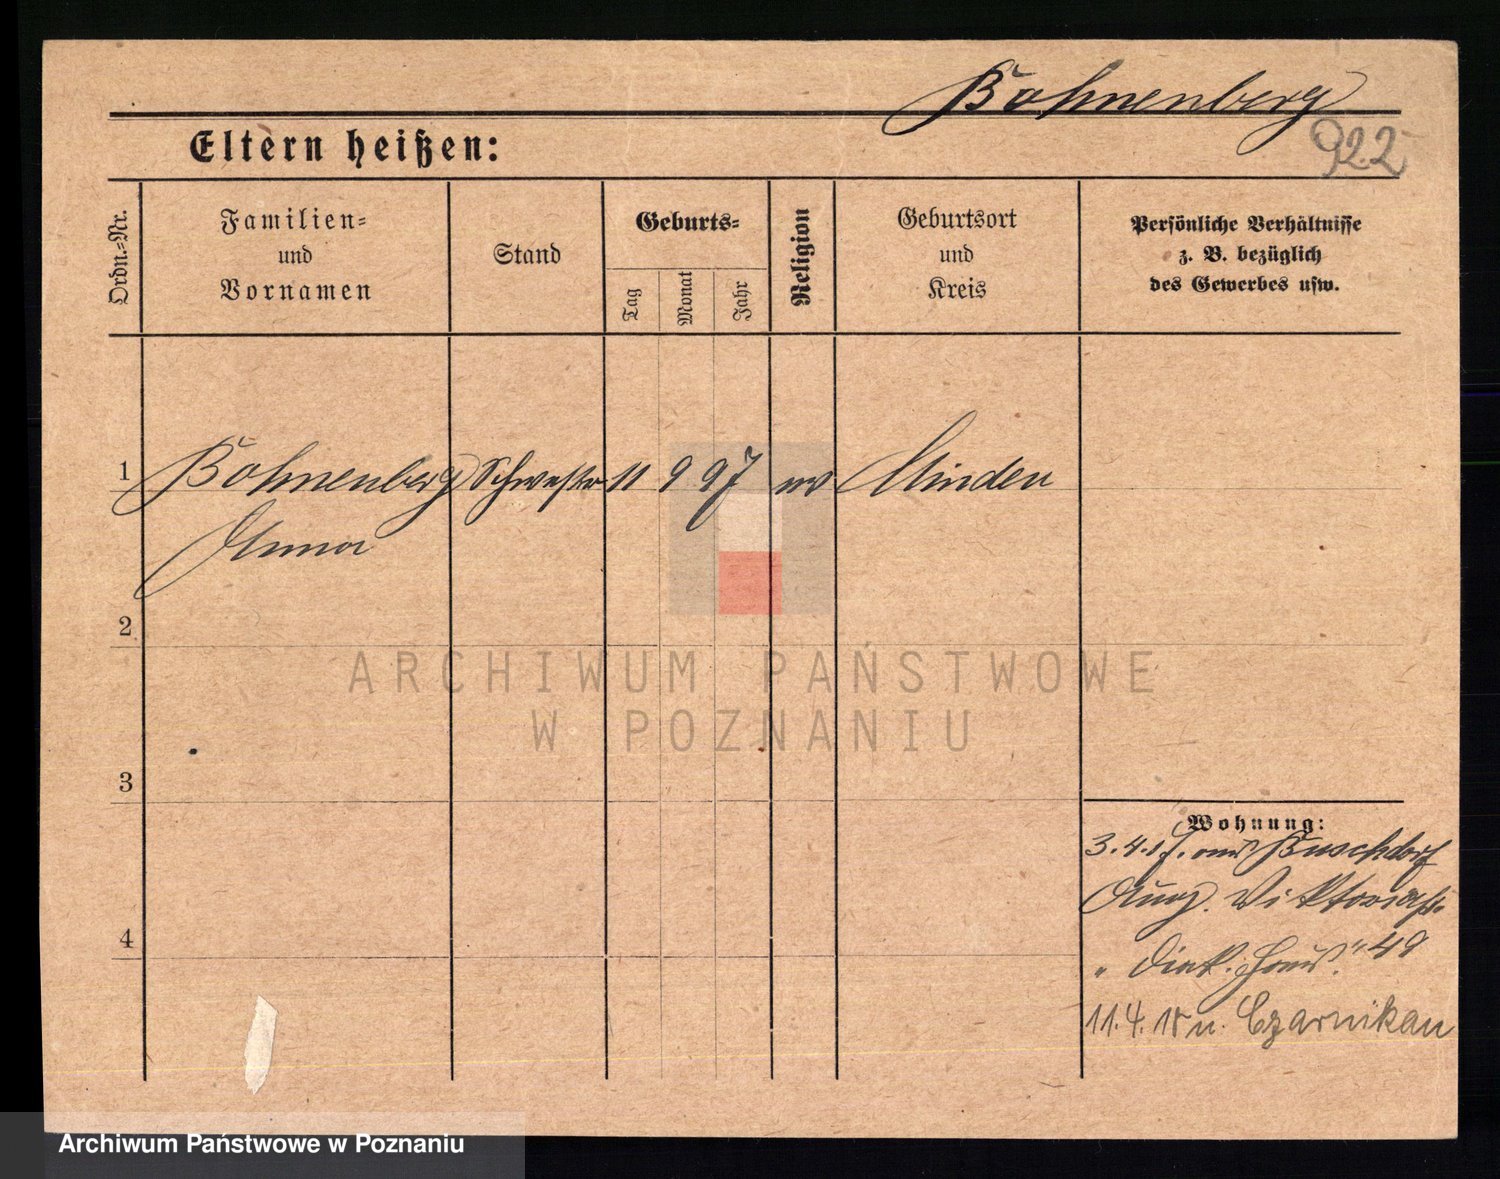 Bohnenberg
922
Eltern heißen:
Ordn.-Nr.
Familien-
und
Vornamen
Stand
Geburts-
Tag
Monat
Jahr
Religion
Geburtsort
und
Kreis
Persönliche Verhältnisse
z. B. bezüglich
des Gewerbes usw.
1 Bohnenberg Schwester 11 9 97 ev Minden
Anna
2
3
4
Wohnung:
3.4.17. aus Buschdorf
Aug. Viktoriastr.
" Diak. Haus." 49
11.4.18 n. Czarnikau
ARCHIWUM PAŃSTWOWE
W POZNANIU
Archiwum Państwowe w Poznaniu